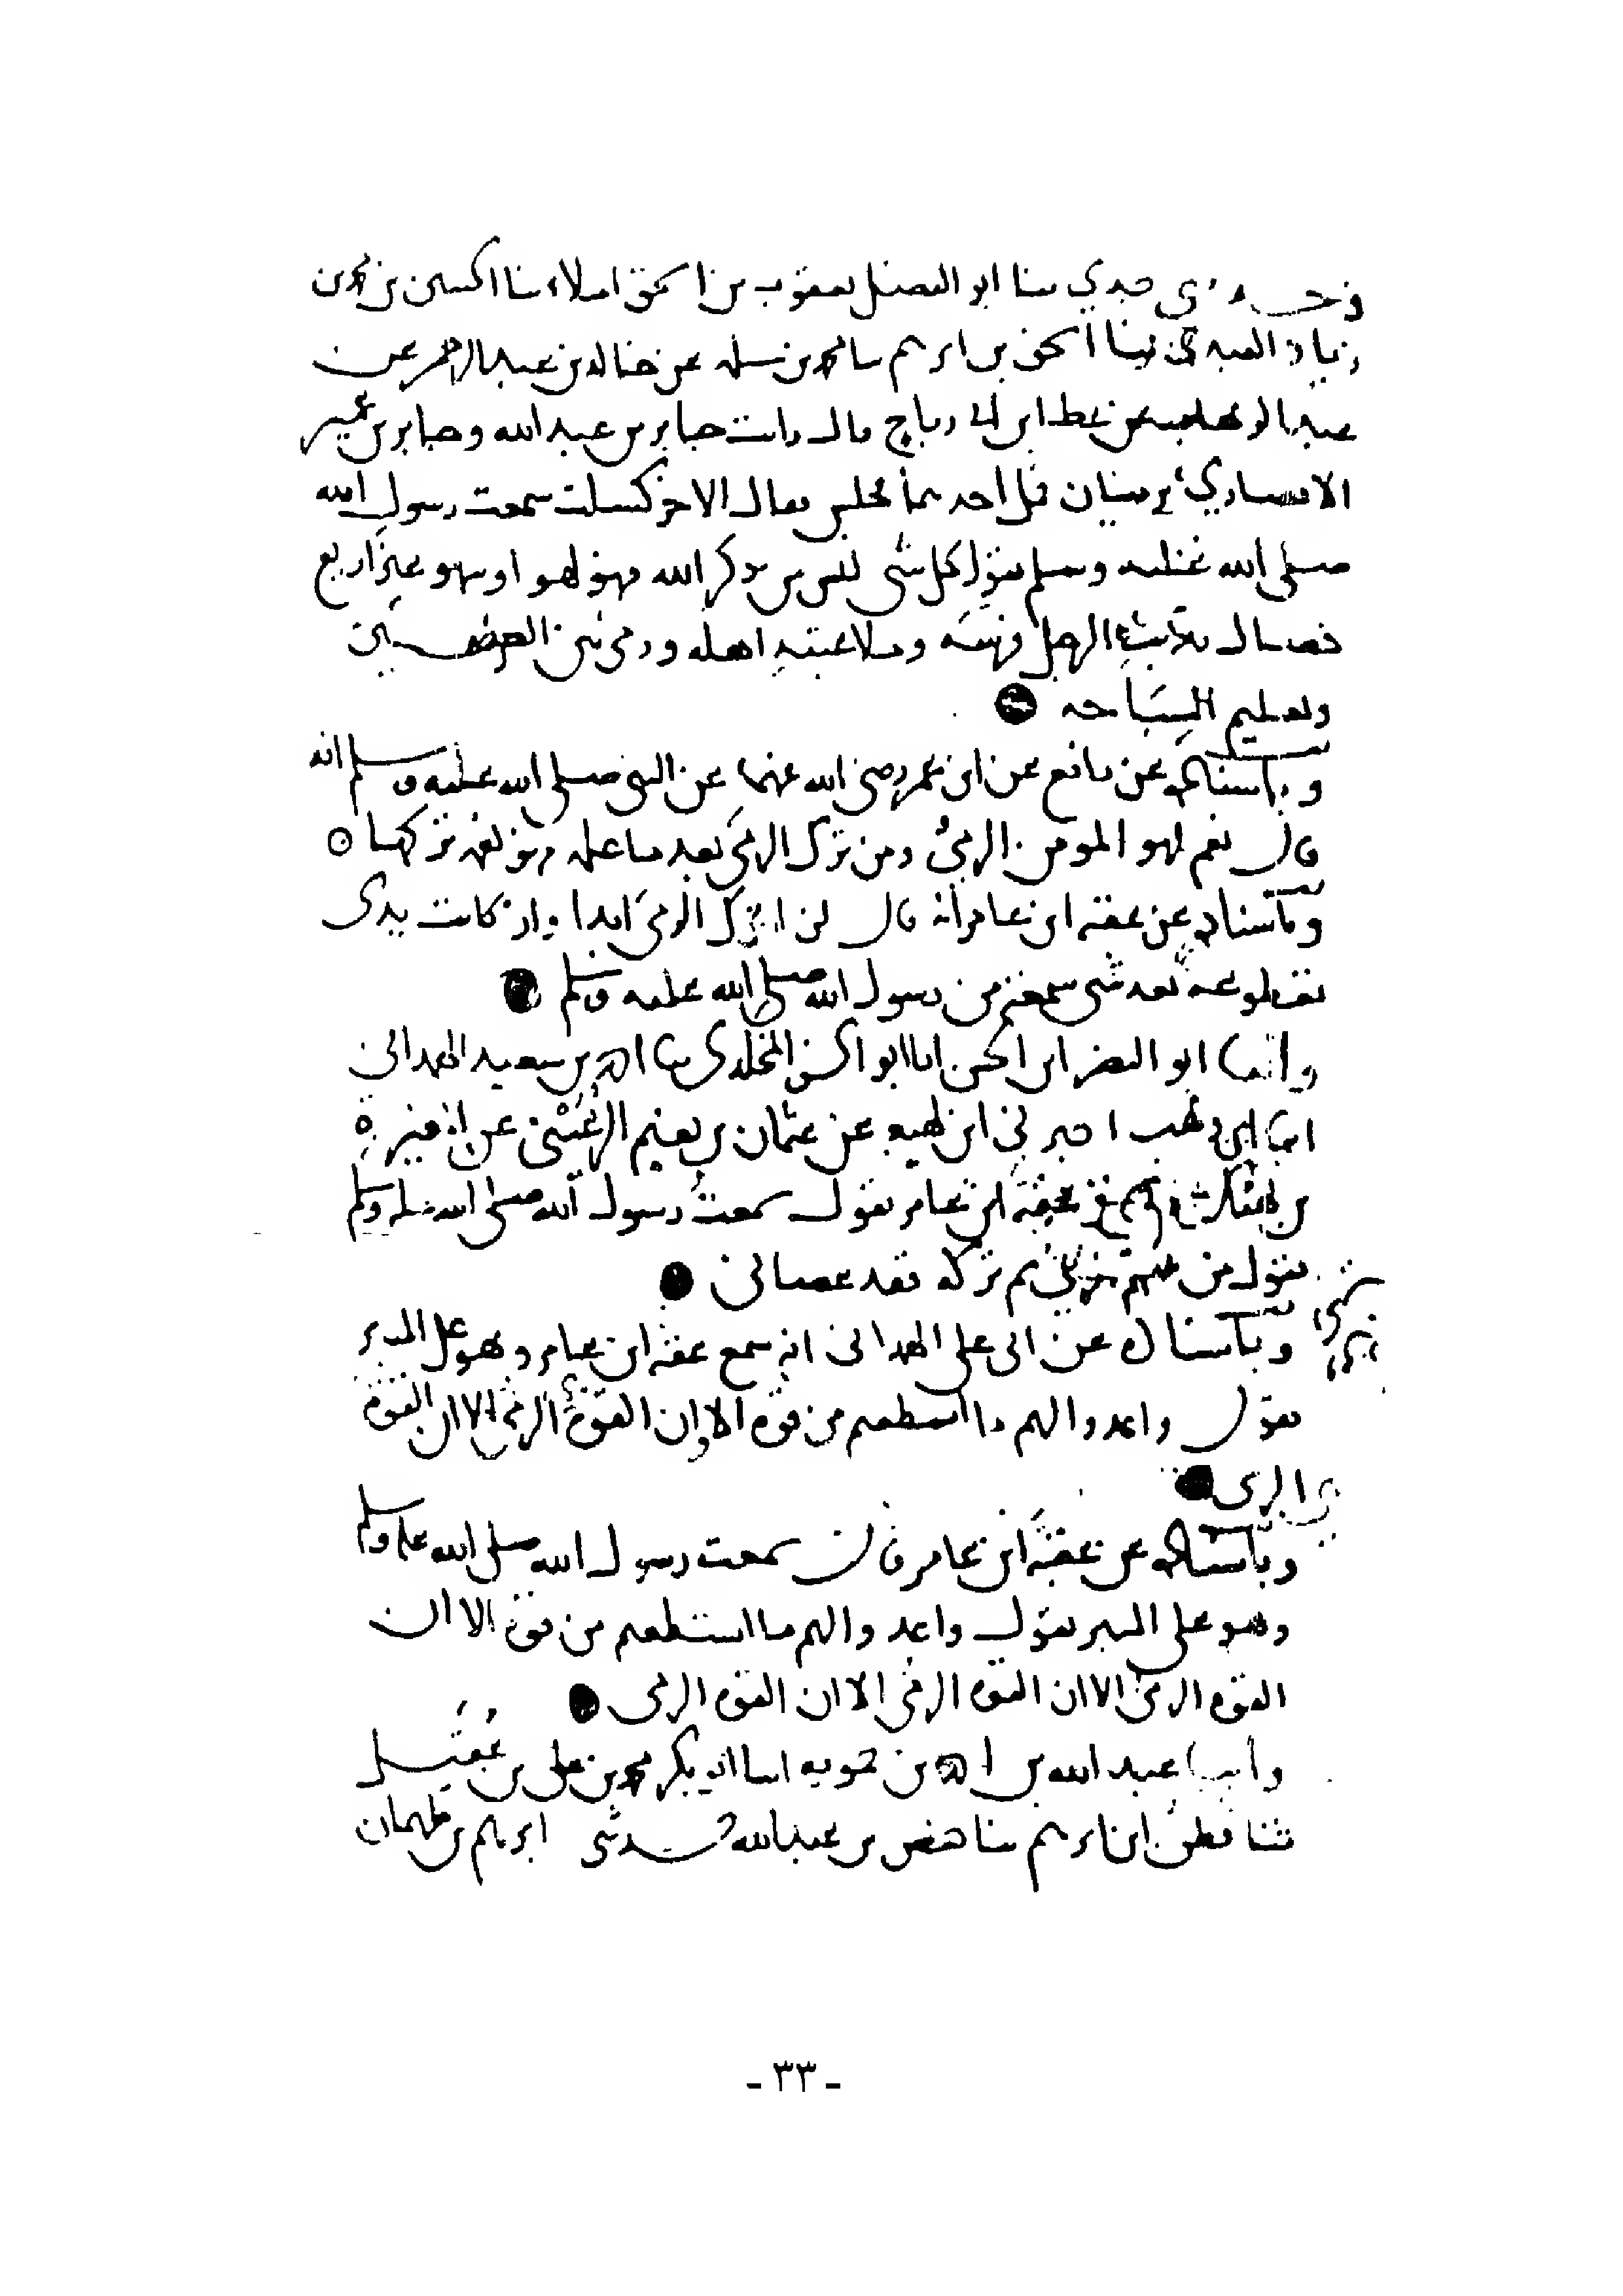 وحدثني جدي ثنا ابو الفضل يعقوب بن اسحق املاء ثنا الحسين بن محمد بن
زياد ثنا اسحق بن ابرهيم ثنا محمد بن سلمه عن خالد بن عبد الرحمن عن
عبد الوهاب عن عطا ابن ابي رباح قال رات جابر بن عبد الله وجابر بن عمير
الانصاري يرميان فمل احدهما فجلس فقال الاخر كسلت سمعت رسول الله
صلى الله عليه وسلم يقول كل شى ليس من ذكر الله فهو لهو او سهو غير اربع
خصال تاديب الرجل فرسه وملاعبته اهله ورمى بين الغرضين
وتعليم السباحه
وباسناده عن نافع عن ابن عمر رضى الله عنهما عن النبى صلى الله عليه وسلم انه
قال نعم لهو المومن الرمى ومن ترك الرمى بعد ما علمه فهو نعمة تركها
وباسناده عن عقبه ابن عامر انه قال لن اترك الرمى ابدا وان كانت يدى
مقطوعه بعد شى سمعته من رسول الله صلى الله عليه وسلم
وانبا ابو النضر ابن الحسن ابنا ابو الحسن المخلدى ثنا احمد بن سعيد الهمدانى
ابنا ابن وهب اخبرنى ابن لهيعه عن عثمان بن نعيم الرعينى عن المغيره
بن عقبه ابن عامر يقول سمعت رسول الله صلى الله عليه وسلم
يقول من ثم تركه فقد عصانى
وباسناده عن ابى على الهمدانى انه سمع عقبه ابن عامر وهو على المنبر
يقول واعدوا لهم ما استطعتم من قوه الا وان القوة الرمى الا ان القوة
الرمى
وباسناده عن عقبه ابن عامر قال سمعت رسول الله صلى الله عليه وسلم
وهو على المنبر يقول واعدوا لهم ما استطعتم من قوة الا ان
القوه الرمى الا ان القوه الرمى الا ان القوه الرمى
وانبا عبد الله بن احمد بن حمويه ابنا ابو بكر محمد بن على بن عقيل
ثنا قطن ابن ابرهيم ثنا حفص بن عبد الله حدثنى ابرهيم بن طهمان
- ٣٣ -